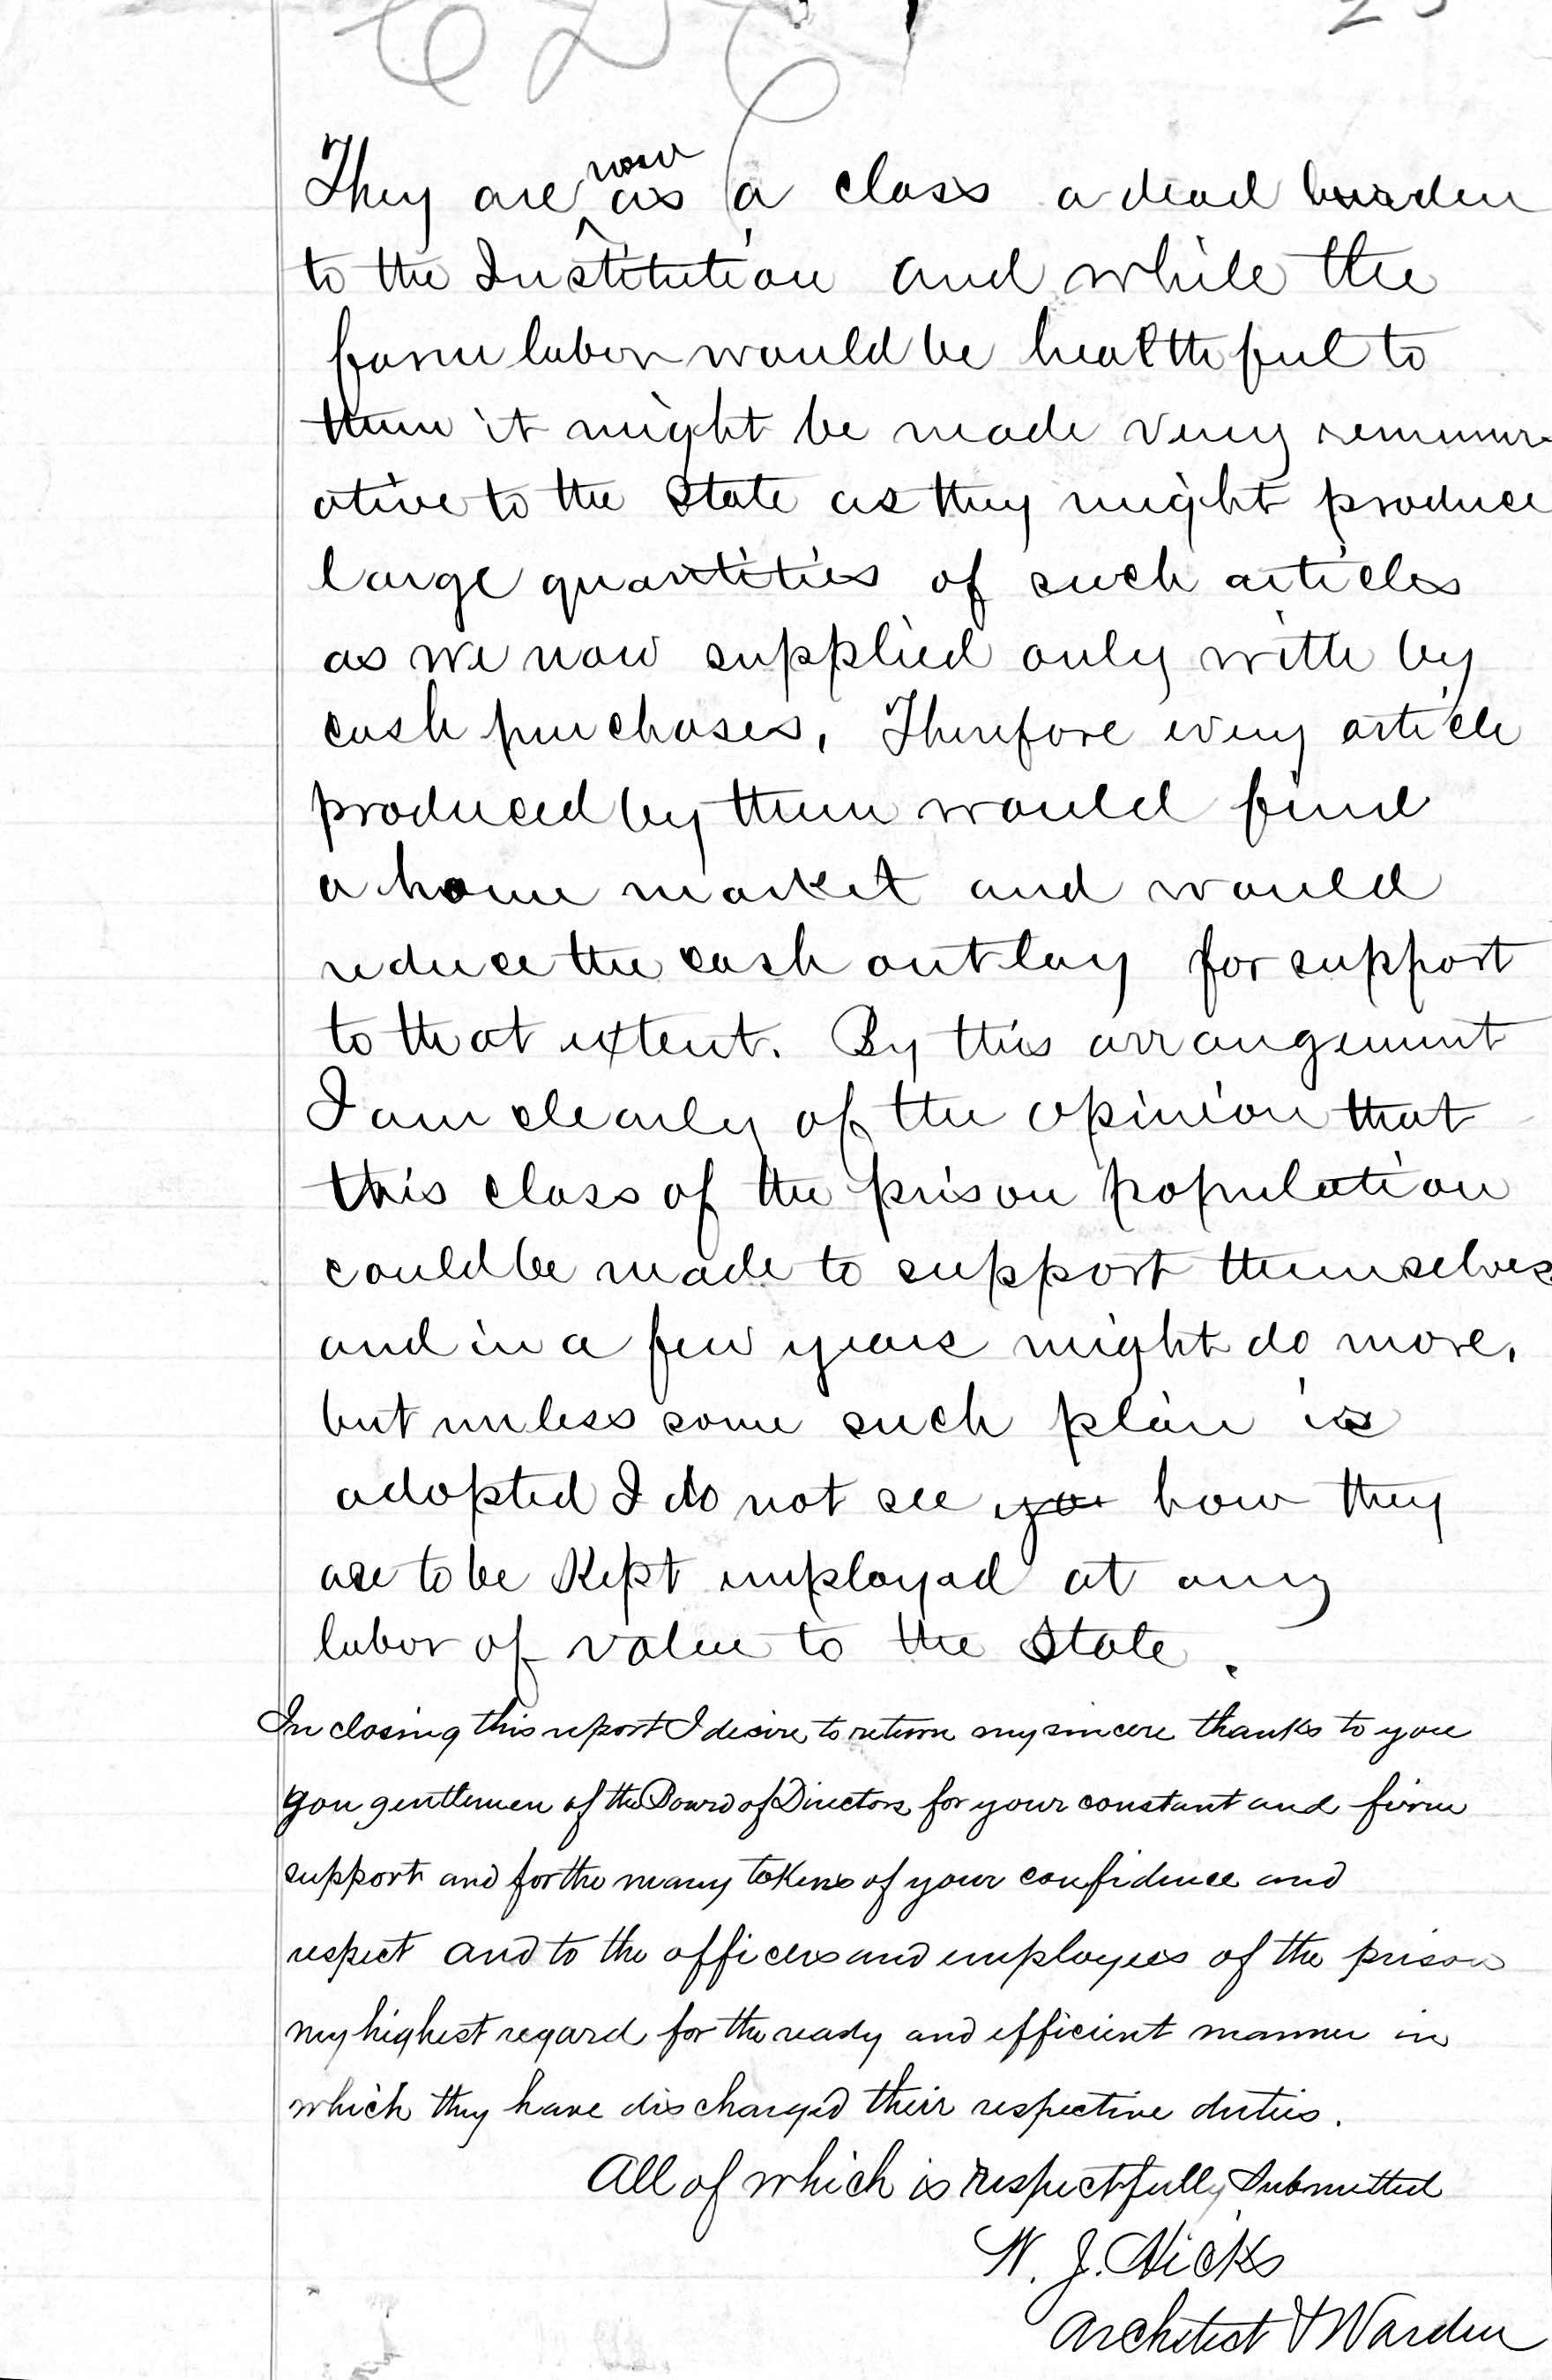 They are now as a class a dead burden
to the Institution and while the
farm labor would be healthful to
them it might be made very remuner
ative to the State as they might produce
large quantities of such articles
as we now supplied only with by
cash purchases, Therefore every article
produced by them would find
a home market and would
reduce the cash outlay for support
to that extent. By this arrangement
I am clearly of the opinion that
this class of the prison population
could be made to support themselves
and in a few years might do more,
but unless some such plan is
adopted I do not see you how they
are to be Kept employed at any
labor of value to the State.
In closing this report I desire to return my sincere thanks to you
you gentlemen of the Board of Directors for your constant and firm
support and for the many tokens of your confidence and
respect and to the officers and employees of the prison
my highest regard for the ready and efficient manner in
which they have discharged their respective duties.
All of which is respectfully Submitted
W. J. Hicks
Architect & Warden